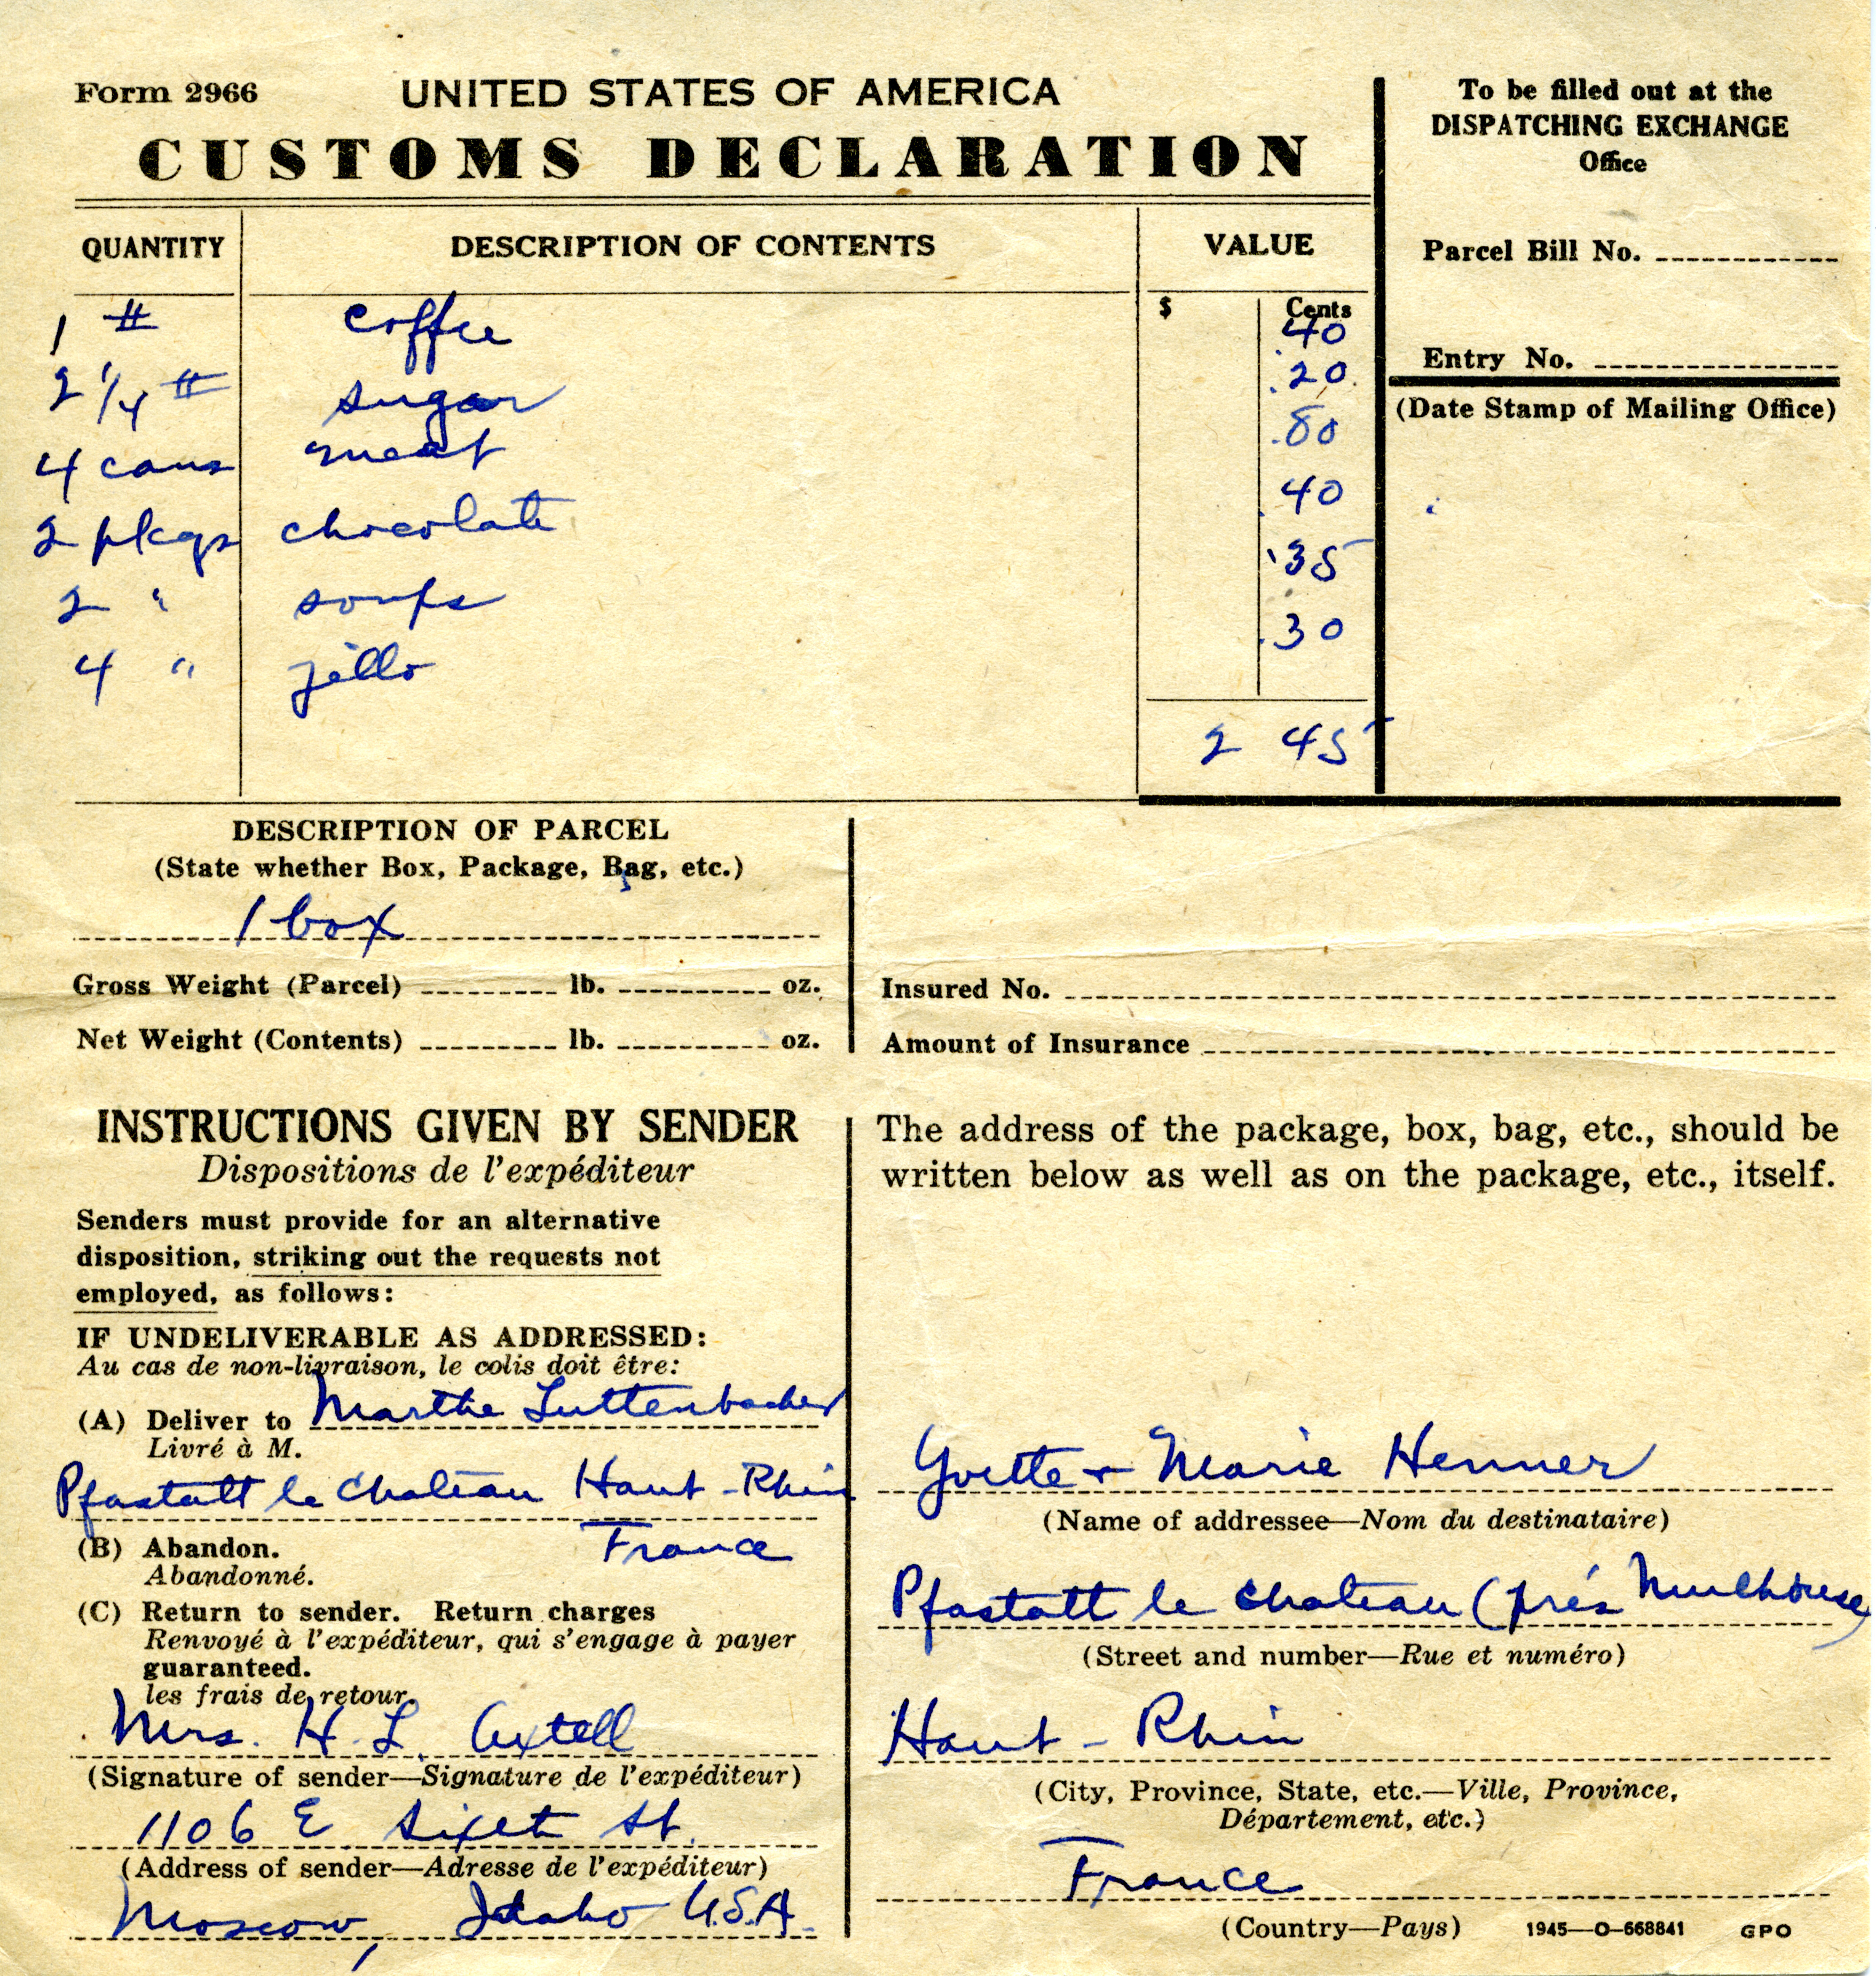 Form 2966 UNITED STATES OF AMERICA
CUSTOMS DECLARATION
To be filled out at the
DISPATCHING EXCHANGE
Office
Parcel Bill No.
Entry No.
(Date Stamp of Mailing Office)
QUANTITY DESCRIPTION OF CONTENTS VALUE
$ Cents
1 # coffee 40
2 1/4 # sugar .20
4 cans meat .80
2 pkgs chocolate .40
2 " soups .35
4 " jello .30
2 45
DESCRIPTION OF PARCEL
(State whether Box, Package, Bag, etc.)
1 box
Gross Weight (Parcel) lb. oz.
Net Weight (Contents) lb. oz.
Insured No.
Amount of Insurance
INSTRUCTIONS GIVEN BY SENDER
Dispositions de l'expéditeur
Senders must provide for an alternative
disposition, striking out the requests not
employed, as follows:
IF UNDELIVERABLE AS ADDRESSED:
Au cas de non-livraison, le colis doit être:
(A) Deliver to Marthe Luttenbacher
Livré à M.
Pfastatt le Chateau Haut-Rhin
France
(B) Abandon.
Abandonné.
(C) Return to sender. Return charges
Renvoyé à l'expéditeur, qui s'engage à payer
guaranteed.
les frais de retour.
Mrs. H. L. Axtell
(Signature of sender—Signature de l'expéditeur)
1106 E Sixet St.
(Address of sender—Adresse de l'expéditeur)
Moscow, Idaho U.S.A.
The address of the package, box, bag, etc., should be
written below as well as on the package, etc., itself.
Yvette + Marie Henner
(Name of addressee—Nom du destinataire)
Pfastatt le Chateau (près Mulhouse)
(Street and number—Rue et numéro)
Haut-Rhin
(City, Province, State, etc.—Ville, Province,
Département, etc.)
France
(Country—Pays) 1945—O-668841 GPO